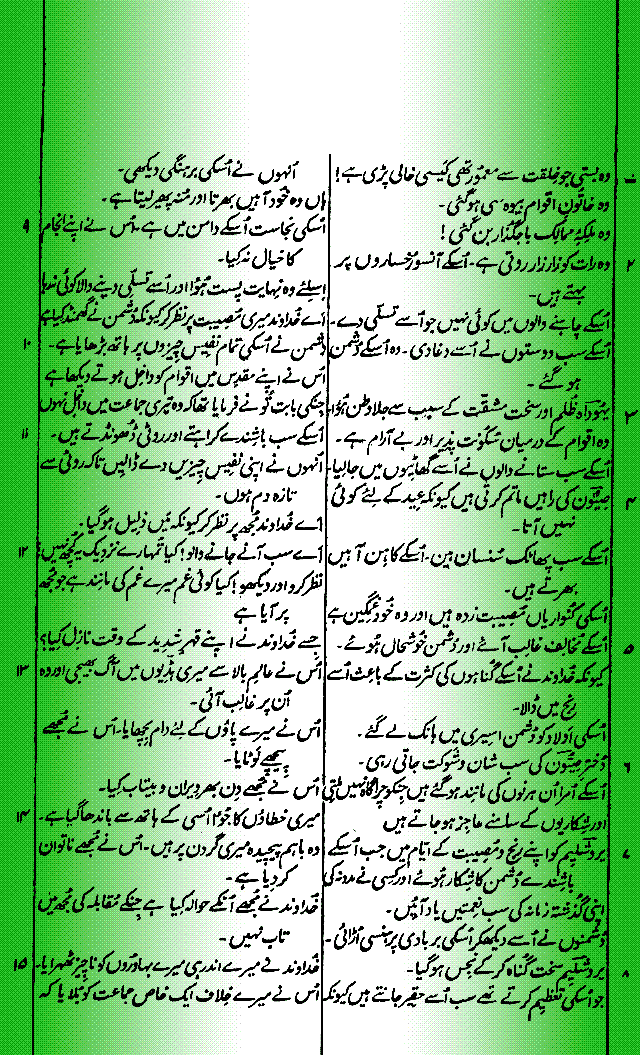 وہ بستی جو خلقت سے معمور تھی کیسی خالی پڑی ہے!
وہ خاتُونِ اقوام بیوہ سی ہو گئی۔
وہ ملِکۂ ممالِک باجگُذار بن گئی!
۲ وہ رات کو زار زار روتی ہے۔ اُسکے آنسُو رُخساروں پر
بہتے ہیں۔
اُسکے چاہنے والوں میں کوئی نہیں جو اُسے تسلّی دے۔
اُسکے سب دوستوں نے اُسے دغا دی۔ وہ اُسکے دُشمن
ہو گئے۔
۳ یہُوداہ ظُلم اور سخت مشقّت کے سبب سے جلاوطن ہُؤا۔
وہ اقوام کے درمیان سکُونت پذیر اور بے آرام ہے۔
اُسکے سب ستانے والوں نے اُسے گھاٹیوں میں جا لیا۔
۴ صِیُّون کی راہیں ماتم کرتی ہیں کیونکہ عِید کے لئے کوئی
نہیں آتا۔
اُسکے سب پھاٹک سُنسان ہیں۔ اُسکے کاہن آہیں
بھرتے ہیں۔
اُسکی کُنواریاں مُصیبت زدہ ہیں اور وہ خُود غمگین ہے
۵ اُسکے مُخالِف غالِب آئے اور دُشمن خُوشحال ہُوئے۔
کیونکہ خُداوند نے اُسکے گُناہوں کی کثرت کے باعِث اُسے
رنج میں ڈالا۔
اُسکی اَولاد کو دُشمن اسیری میں ہانک لے گئے۔
۶ دُخترِ صِیُّون کی سب شان و شَوکت جاتی رہی۔
اُسکے اُمرا اُن ہرنوں کی مانِند ہو گئے ہیں جنکو چراگاہ نہیں ملتی
اور شِکاریوں کے سامنے عاجز ہو جاتے ہیں
۷ یروشلیم کو اپنے رنج و مُصیبت کے ایّام میں جب اُسکے
باشِندے دُشمن کا شِکار ہُوئے اور کِسی نے مدد نہ کی
اپنی گُذشتہ زمانہ کی سب نعمتیں یاد آئیں۔
دُشمنوں نے اُسے دیکھکر اُسکی بربادی پر ہنسی اُڑائی۔
۸ یروشلیم سخت گُناہ کر کے نجِس ہو گیا۔
جو اُسکی تعظیم کرتے تھے سب اُسے حقِیر جانتے ہیں کیونکہ
اُنہوں نے اُسکی برہنگی دیکھی۔
ہاں وہ خُود آہیں بھرتا اور مُنہ پھیر لیتا ہے۔
۹ اُسکی نجاست اُسکے دامن میں ہے۔ اُس نے اپنے انجام
کا خیال نہ کیا۔
اِسلِئے وہ نہایت پست ہُؤا اور اُسے تسلّی دینے والا کوئی نہ رہا
اَے خُداوند میری مُصیبت پر نظر کر کیونکہ دُشمن نے گھمنڈ کیا ہے
۱۰ دُشمن نے اُسکی تمام نفیس چیزوں پر ہاتھ بڑھایا ہے۔
اُس نے اپنے مَقدِس میں اقوام کو داخل ہوتے دیکھا ہے
جنکی بابت تُو نے فرمایا تھا کہ وہ تیری جماعت میں داخل نہ ہوں
۱۱ اُسکے سب باشِندے کراہتے اور روٹی ڈھونڈتے ہیں۔
اُنہوں نے اپنی نفیس چیزیں دے ڈالیں تاکہ روٹی سے
تازہ دم ہوں۔
اَے خُداوند مُجھ پر نظر کر کیونکہ مَیں ذلیل ہو گیا۔
۱۲ اَے سب آنے جانے والو! کیا تمہارے نزدیک یہ کُچھ نہیں؟
نظر کرو اور دیکھو! کیا کوئی غم میرے غم کی مانِند ہے جو مُجھ
پر آیا ہے
جِسے خُداوند نے اپنے قہرِ شدید کے وقت نازِل کیا؟
۱۳ اُس نے عالمِ بالا سے میری ہڈیوں میں آگ بھیجی اور وہ
اُن پر غالِب آئی۔
اُس نے میرے پاؤں کے لئے دام بِچھایا۔ اُس نے مُجھے
پیچھے لَوٹایا۔
اُس نے مُجھے دِن بھر وِیران و بیتاب کیا۔
۱۴ میری خطاؤں کا جُؤا اُسی کے ہاتھ سے باندھا گیا ہے۔
وہ باہم پیچیدہ میری گردن پر ہیں۔ اُس نے مُجھے ناتوان
کر دیا ہے۔
خُداوند نے مُجھے اُنکے حوالہ کیا ہے جنکے مُقابلہ کی مُجھ میں
تاب نہیں۔
۱۵ خُداوند نے میرے اندر ہی میرے بہادُروں کو ناچیز ٹھہرایا۔
اُس نے میرے خِلاف ایک خاص جماعت کو بُلایا کہ